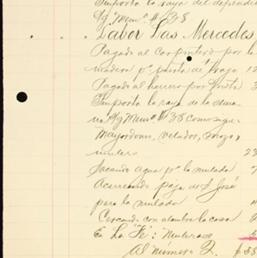 Importe la raya del dependien
Pg Memo # 28
Labor Las Mercedes
Pagado al carpintero por la
madera pa puerta de troje 12
Pagado al herrero por
Importe la raya de la sema
na Pg Memo # 38 como sigue:
Mayordomo, velador,
muleros 23
Sacando agua pa la mulada 7
Acarreando paja de S José
para la mulada
Cercando con alambre la casa
En La Fé: Muleros
Al número 2. $